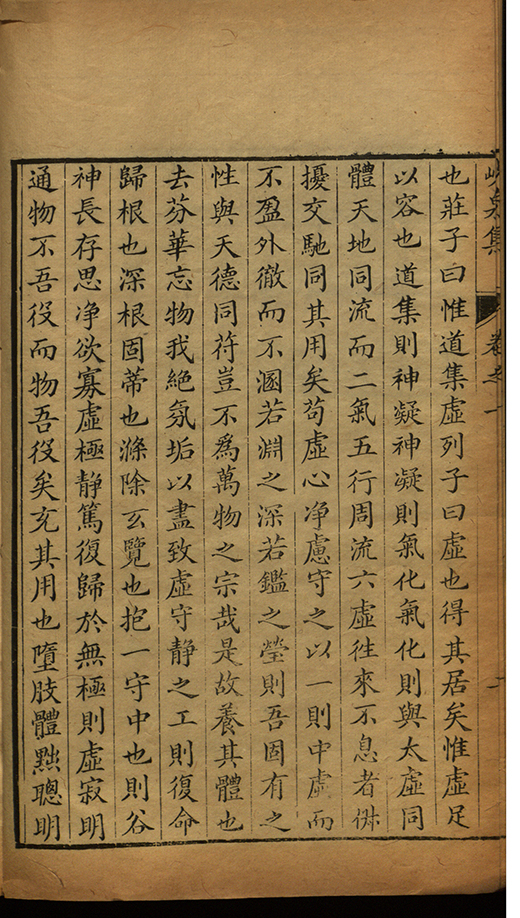 泉集
卷之一
也莊子曰惟道集虛列子曰虛也得其居矣惟虛足
以容也道集則神凝神凝則氣化氣化則與太虛同
體天地同流而二氣五行周流六虛徃來不息者
擾交馳同其用矣苟虛心净慮守之以一則中虛而
不盈外徹而不溷若淵之深若鑑之瑩則吾固有之
性與天德同符豈不爲萬物之宗哉是故養其體也
去芬華忘物我絶氛垢以盡致虛守静之工則復命
歸根也深根固蒂也滌除玄覽也抱一守中也則谷
神長存思净欲寡虛極静篤復歸於無極則虛寂明
通物不吾役而物吾役矣充其用也墮肢體黜聰明